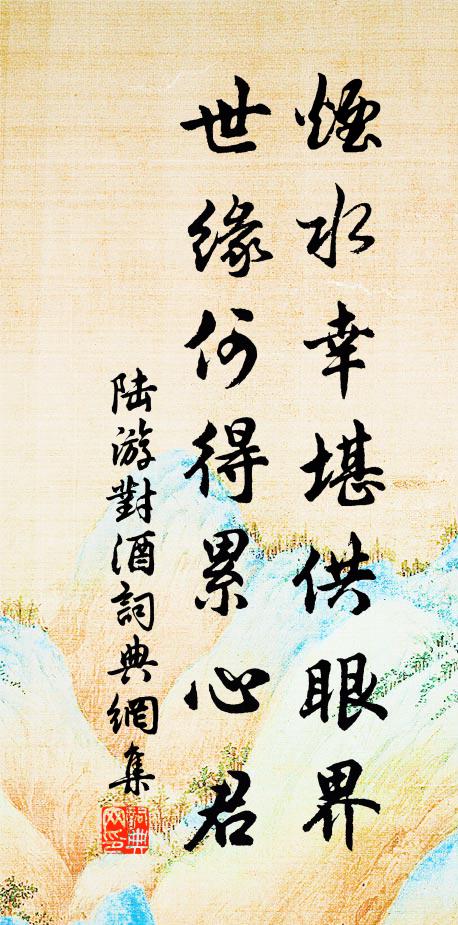 煙水幸堪供眼界
世緣何得累心君
陆游對酒詞典網集
詞典